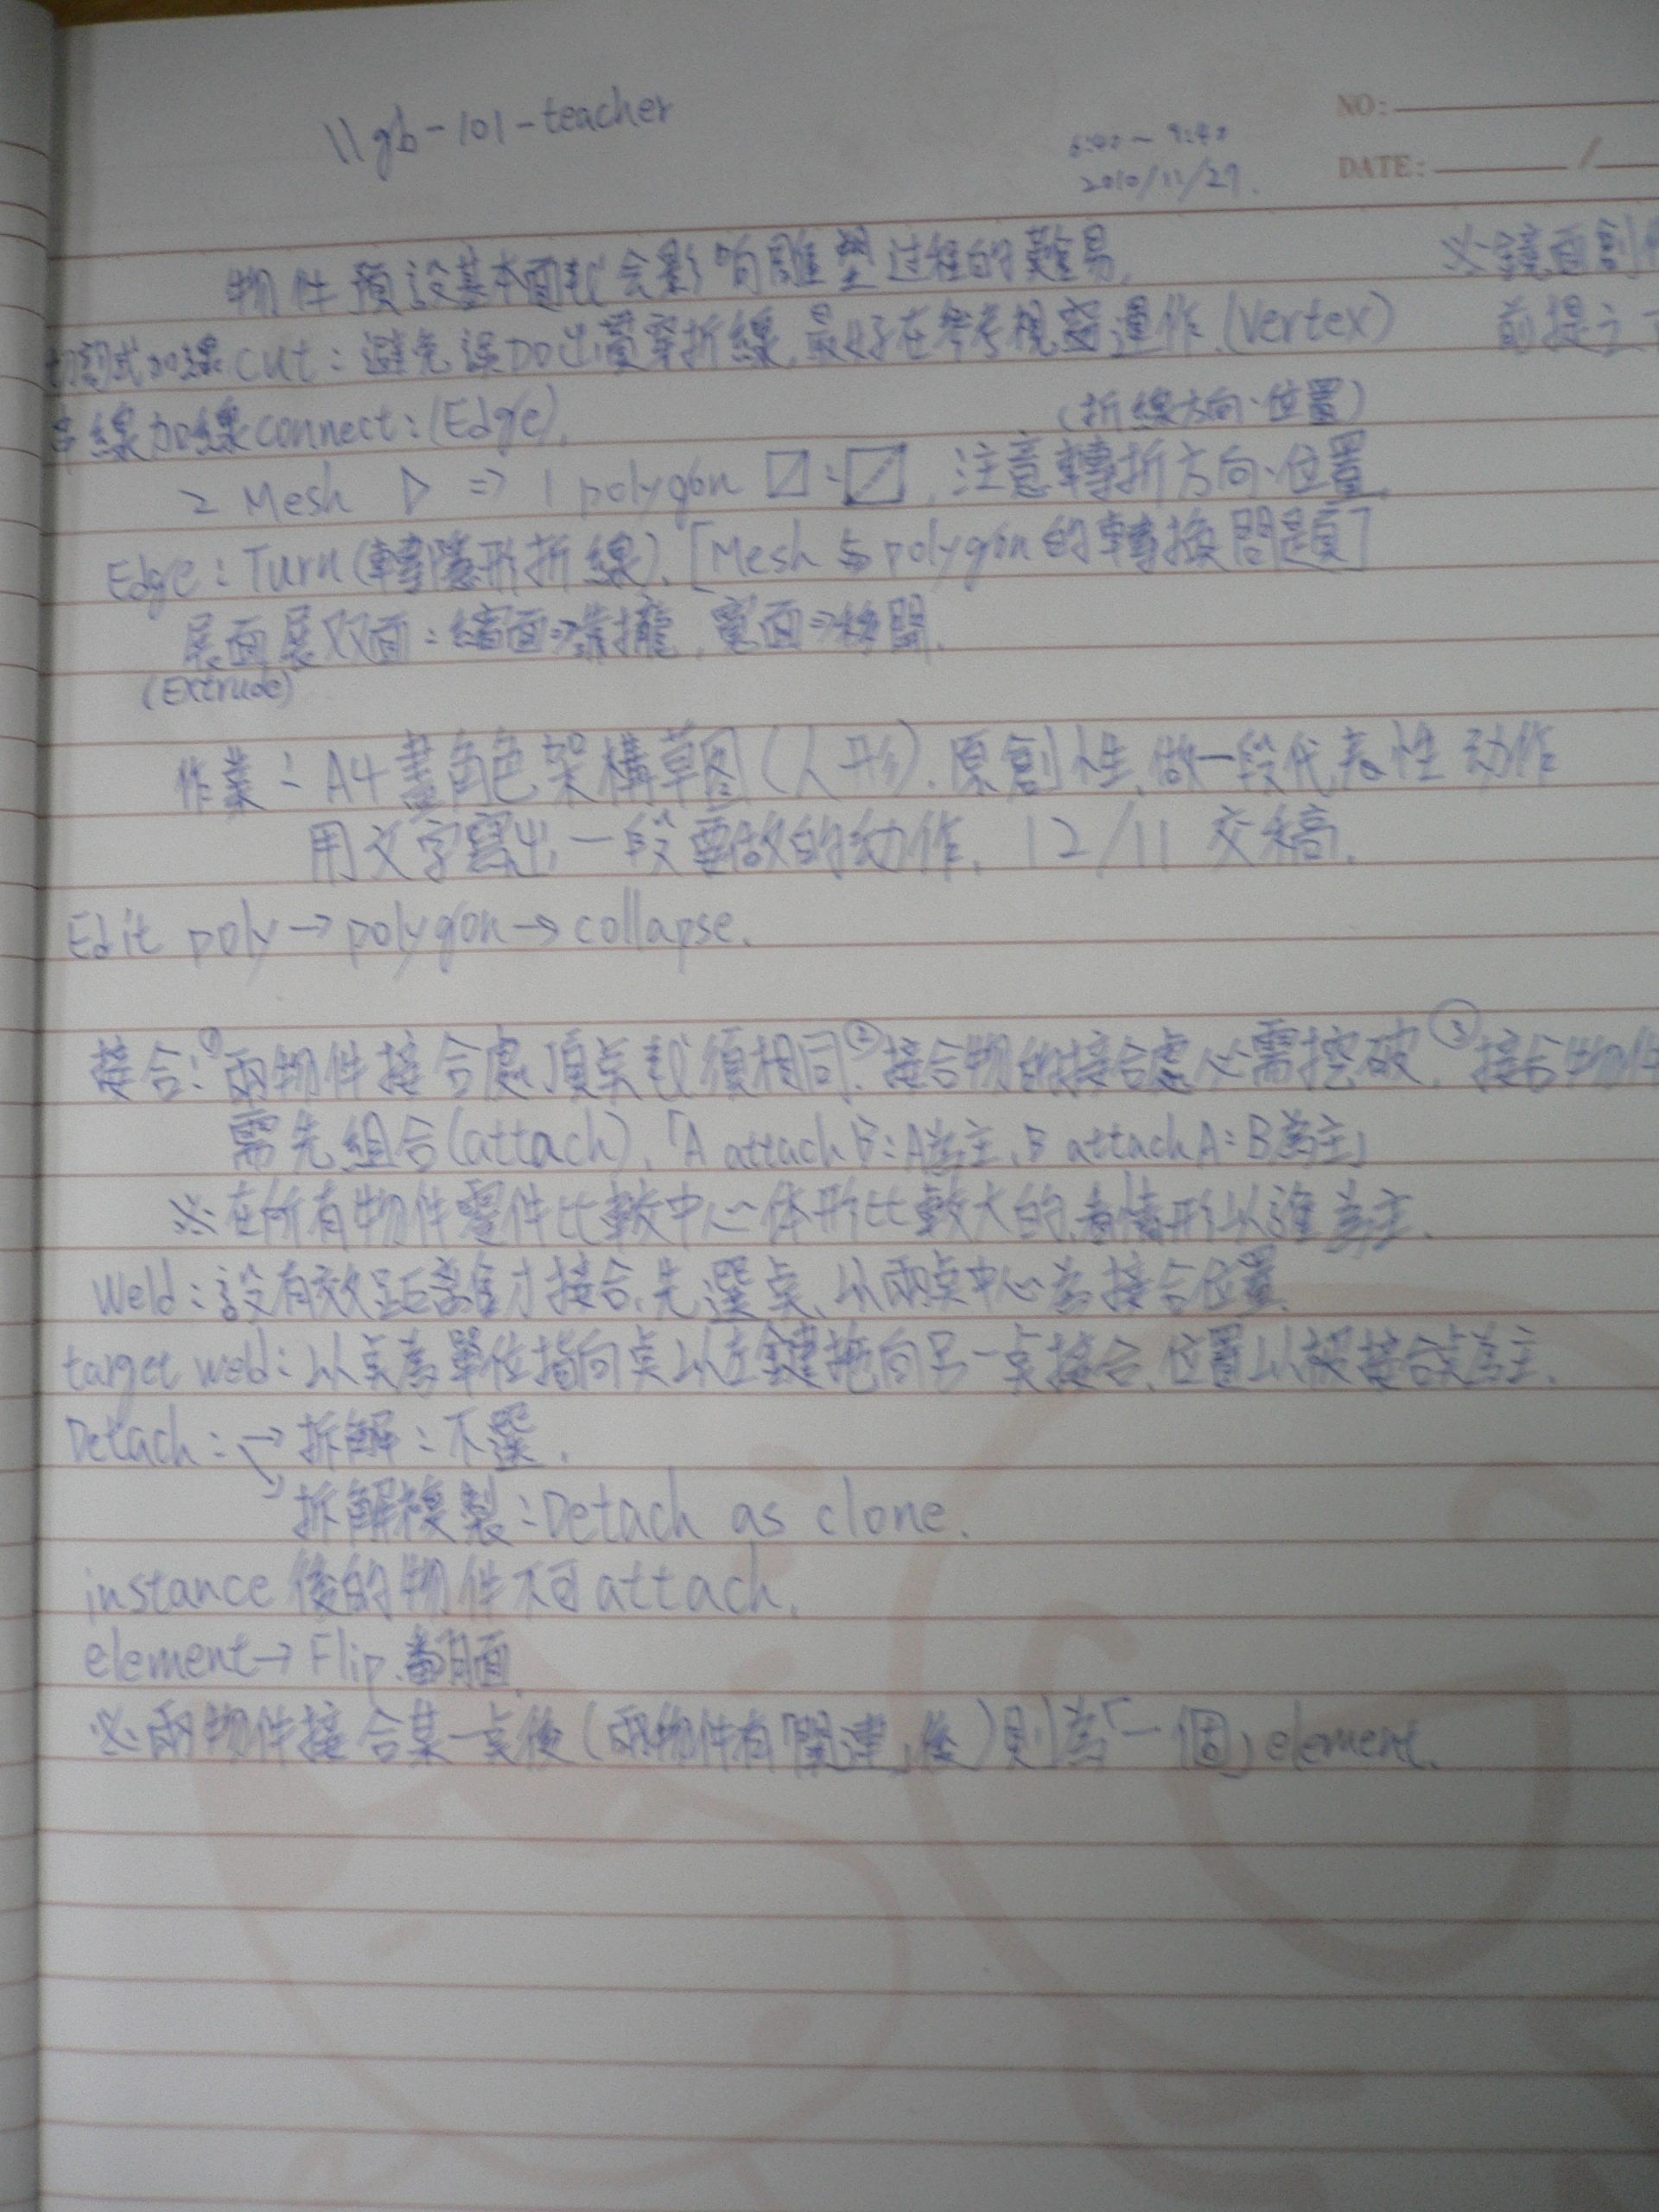 \\gb-101-teacher
6:40～9:40
NO:
2010/11/27.
DATE: /
物件預設基本面数会影响雕塑过程的難易.
※鏡面
切割式加線cut:避免誤加出貫穿折線,最好在參考視窗運作.(Vertex)
前提之
線加線connect:(Edge).
(折線方向、位置)
2 Mesh ▷ ⇒ 1 polygon :, 注意轉折方向、位置.
Edge:Turn(轉隱形折線).[Mesh与polygon的轉換問題]
展面展双面:縮面⇒靠攏,寬面⇒移開.
(Extrude)
作業:A4畫角色架構草图(人形).原創性,做一段代表性动作
用文字寫出一段要做的动作. 12/11 交稿.
Edit poly→polygon→collapse.
接合:①兩物件接合處頂点数須相同.②接合物的接合處必需挖破.③接合物件
需先組合(attach).「A attach B:A為主、B attach A:B為主」
※在所有物件零件比較中心体形比較大的,看情形以誰為主.
Weld:設有效距離才接合,先選点,以兩点中心為接合位置.
target weld:以点為單位指向点以左鍵拖向另一点接合,位置以被接合点為主.
Detach:→拆解:不選.
↘拆解複製:Detach as clone.
instance後的物件不可attach.
element→Flip.翻面.
※兩物件接合某一点後(兩物件有「関連」後)則為「一個」element.